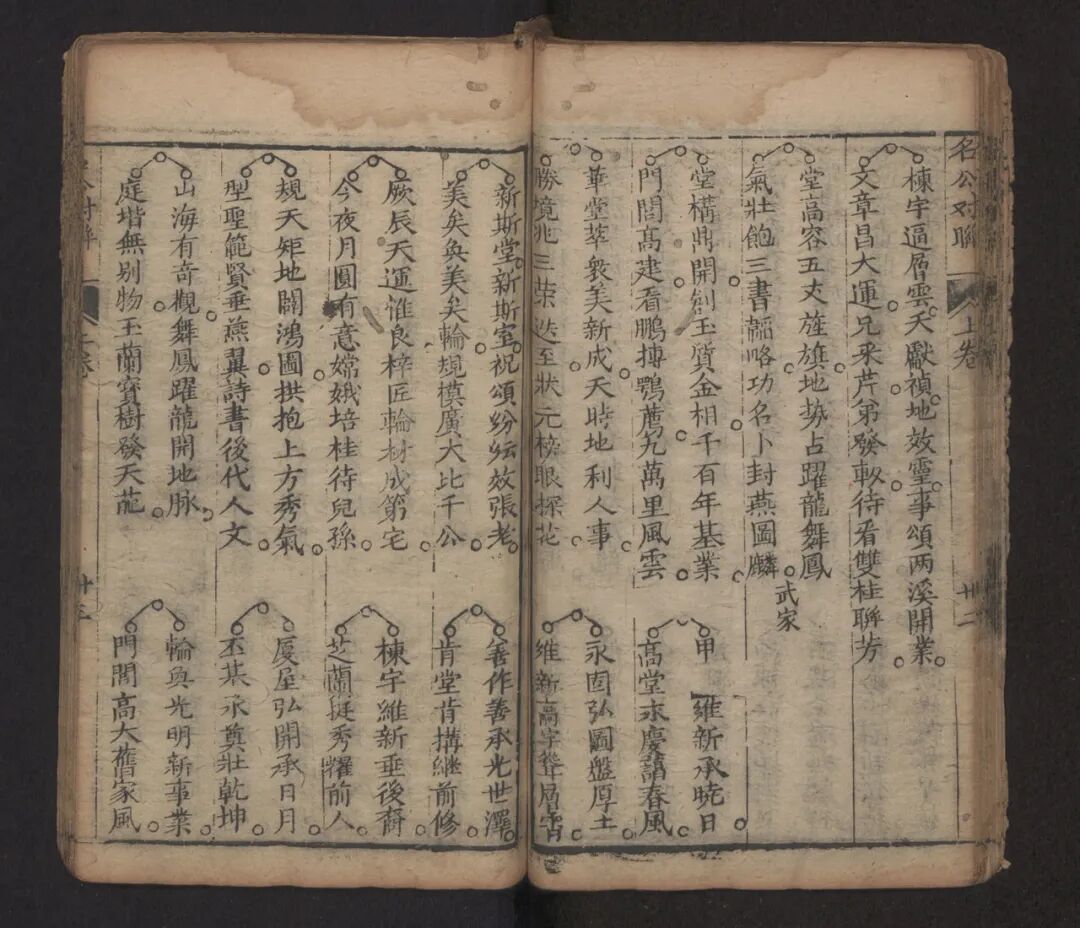 名公对聯
上卷
廿二
棟宇逼層雲天獻禎地效靈事頌两溪開業
文章昌大運兄采芹弟發軔待看雙桂聯芳
堂高容五丈旌旗地势占躍龍舞鳳
氣壯飽三書韜略功名卜封燕圖麟
武家
堂構鼎開創玉質金相千百年基業
門閭高建看鵬摶鶚薦九萬里風雲
華堂萃衆美新成天時地利人事
勝境兆三荣迭至狀元榜眼探花
甲 維新承曉日
高堂永慶藹春風
永固弘圖盤厚土
維新高宇聳層霄
新斯堂新斯室祝頌纷紜效張老
美矣奐美矣輪規模廣大比千公
厥辰天運惟良梓匠輪材成第宅
今夜月圓有意嫦娥培桂待兒孫
規天矩地闢鴻圖拱抱上方秀氣
型聖範賢垂燕翼詩書後代人文
山海有奇觀舞鳳躍龍開地脉
庭堦無别物玉蘭寳樹發天葩
善作善承光世澤
肯堂肯搆繼前修
棟宇維新垂後裔
芝蘭挺秀耀前人
厦屋弘開承日月
丕基永奠壯乾坤
輪奐光明新事業
門閭高大舊家風
对聯
卷
廿三